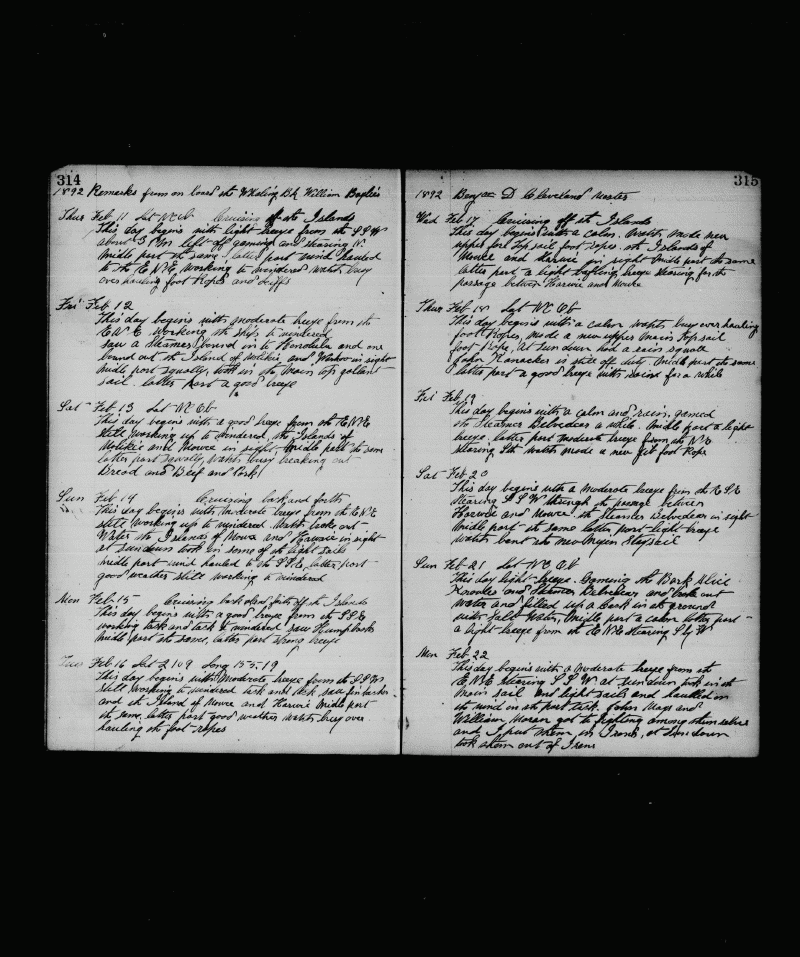 314
1892 Remarks from on board the Whaling Bk William Baylies
Thur Feb 11 Lat NC Ob Cruising off the Islands
This day begins with light breeze from the SSW
about 5 PM left off gaming and steering N.
Midle part the same latter part wind hauled
to the ENE, working to windered watch busy
over hauling foot Ropes and
Fri Feb 12
This day begins with moderate breeze from the
ENE working the ship to windered
saw a steamer bound in to Honolulu and one
bound out the Island of Molikie and in sight
midle part squally, took in the Main top gallant
sail. latter part a good breeze
Sat Feb 13 Lat NC Ob
This day begins with a good breeze from the ENE
still working up to windered, the Islands of
Molikie and Mowee in sight. Midle part the same
latter part squally, watch busy breaking out
Bread and Beef and Pork
Sun Feb 14 Cruising back and forth
This day begins with moderate breeze from the ENE
still working up to windered watch broke out
Water the Islands of Mowe and Harwie in sight
at sundown took in some of the light sails
midle part wind hauled to the SSE, latter part
good weather still working to windered
Mon Feb 15 Cruising back and forth off the Islands
This day begins with a good breeze from the SSE
working tack and tack to windered saw Humpbacks
midle part the same, latter part strong breeze
Tues Feb 16 Lat 21 09 Long 155.19
This day begins with Moderate breeze from the SSW
still working to windered tack and tack, saw finbacks
and the Island of Mowe and Harwie Midle part
the same latter part good weather watch busy over
hauling the foot ropes
315
1892 Benj D Cleveland Master
Wed Feb 17 Cruising off the Islands
This day begins with a calm. Watch made new
upper fore Top sail foot ropes. the Islands of
Mowee and Harwie in sight Midle part the same
latter part a light baffling breeze steering for the
passage between Harwie and Mowee
Thur Feb 18 Lat NC Ob
This day begins with a calm watch busy over hauling
foot Ropes, made a new upper Main Top sail
foot rope, At sun down had a rain squall
John Kanacker is still off duty. Midle part the same
latter part a good breeze with raind for a while
Fri Feb 19
This day begins with a calm and rain, gamed
the Steamer Belvedear a while. Midle part a light
breeze. latter part moderate breeze from the NE
steering Sth watch made a new jib foot Rope
Sat Feb 20
This day begins with a Moderate breeze from the ESE
steering SSW through the passage between
Harwie and Mowee the Steamer Belvedear in sight
Midle part the same latter part light breeze
watch bent the new Mizen Staysail
Sun Feb 21 Lat NC Ob
This day light breeze. Gamming the Bark Alice
Knowles and Steamer Belvedear and broke out
water and filled up a Cask in the ground
with salt Water, Midle part a calm latter part
a light breeze from the ENE steering S by W
Mon Feb 22
This day begins with a Moderate breeze from the
ENE steering SSW at sundown took in the
Main sail and light sails and haulled on
the wind on the port tack. John Mays and
William Moran got to fighting among them selves
and I put them in Irons, at sun down
took them out of Irons